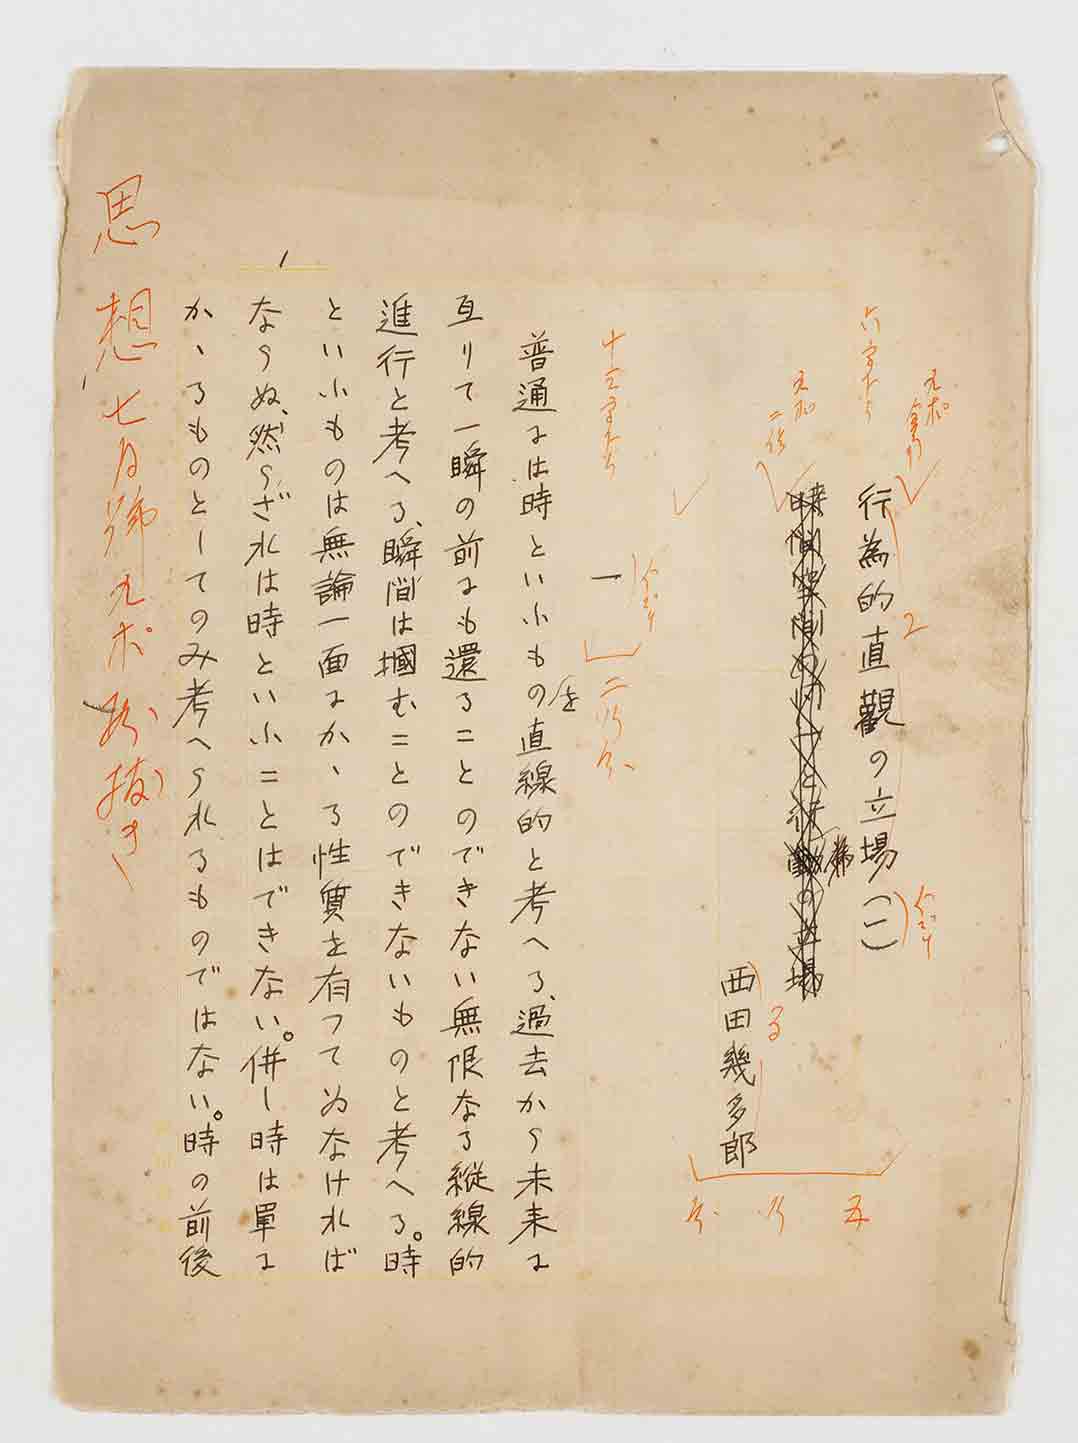 六字下ゲ
行為的直觀の立場(一)
西田幾多郎
五行分
一
二行分
普通には時といふものを直線的と考へる、過去から未来に
亙りて一瞬の前にも還ることのできない無限なる縦線的
進行と考へる、瞬間は摑むことのできないものと考へる。時
といふものは無論一面にかゝる性質を有つてゐなければ
ならぬ、然らざれは時といふことはできない。併し時は単に
かゝるものとしてのみ考へられるものではない。時の前後
1
思想、七月號九ポ
抜き